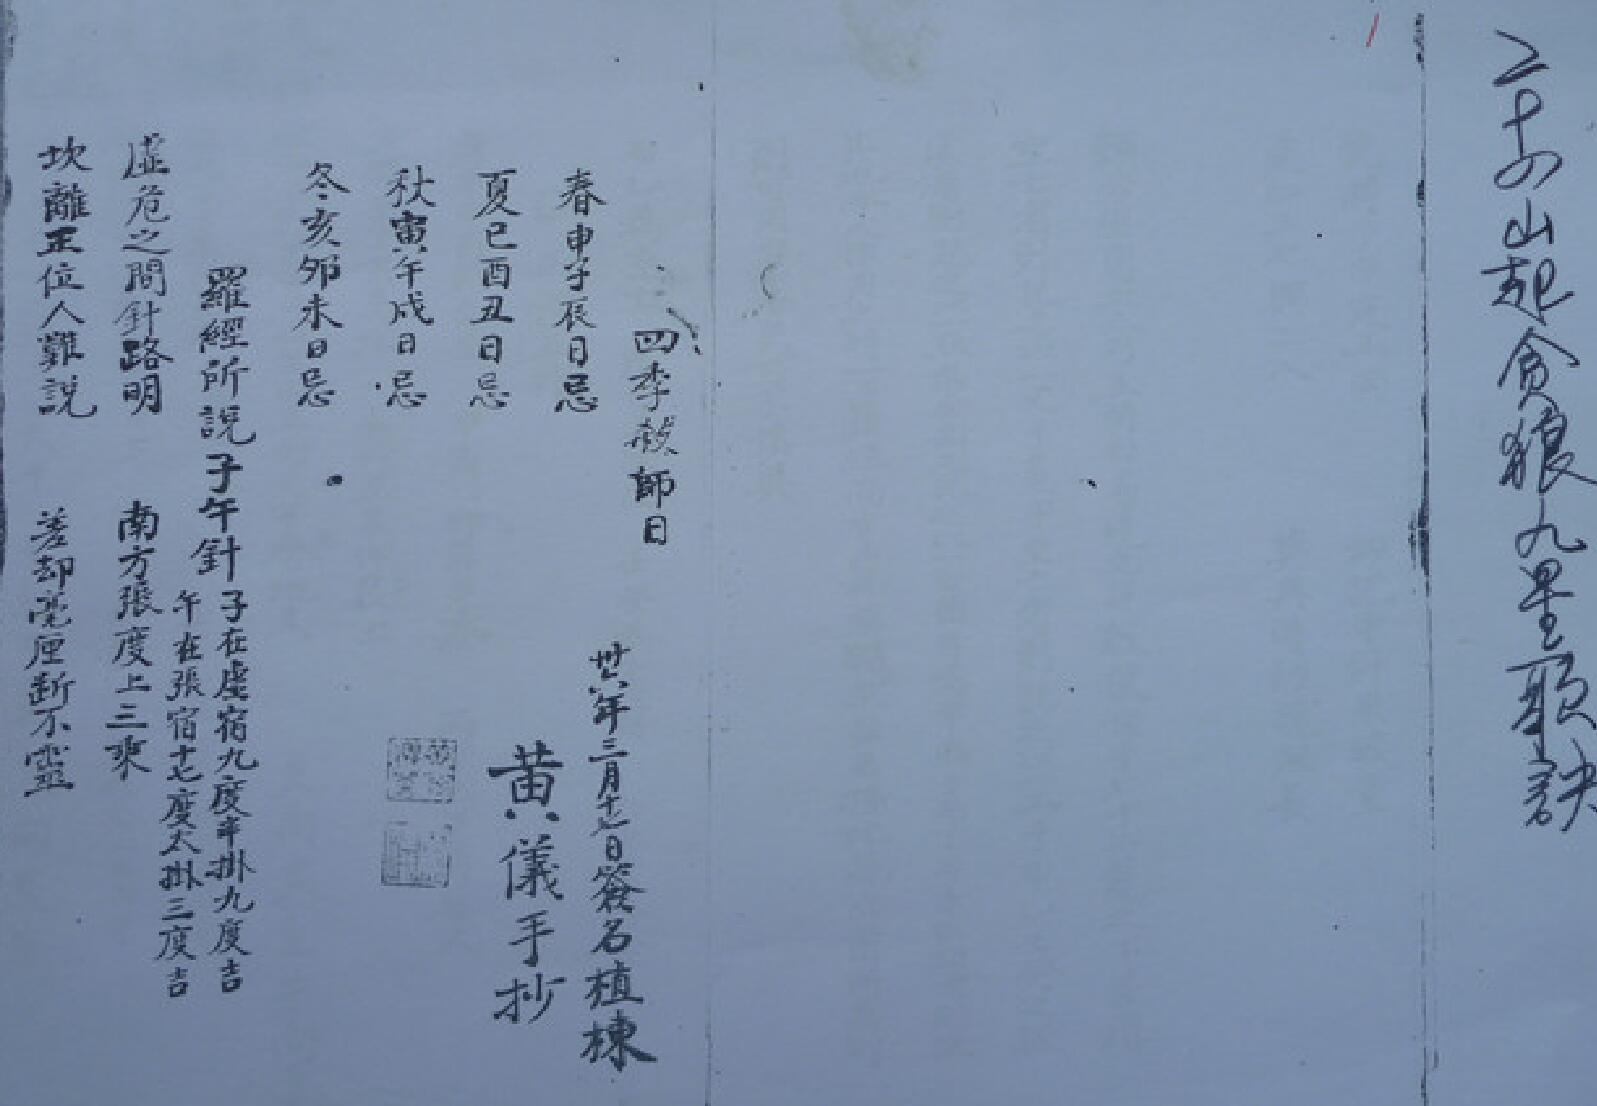 二十四山起贪狼九星歌诀
四季殺師日
春申子辰日忌
夏巳酉丑日忌
秋寅午戌日忌
冬亥夘未日忌
卅六年三月十七日簽名植棟
黃儀手抄
羅經所說子午針
子在虛宿九度半掛九度吉
午在張宿十七度太掛三度吉
虛危之間針路明
南方張度上三乘
坎離正位人難說
差却毫厘斷不靈